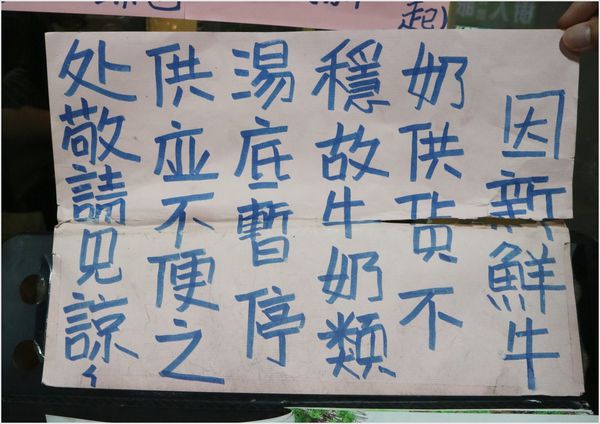 起)
因新鮮牛
奶供货不
穩故牛奶類
湯底暫停
供应不便之
处敬請见諒